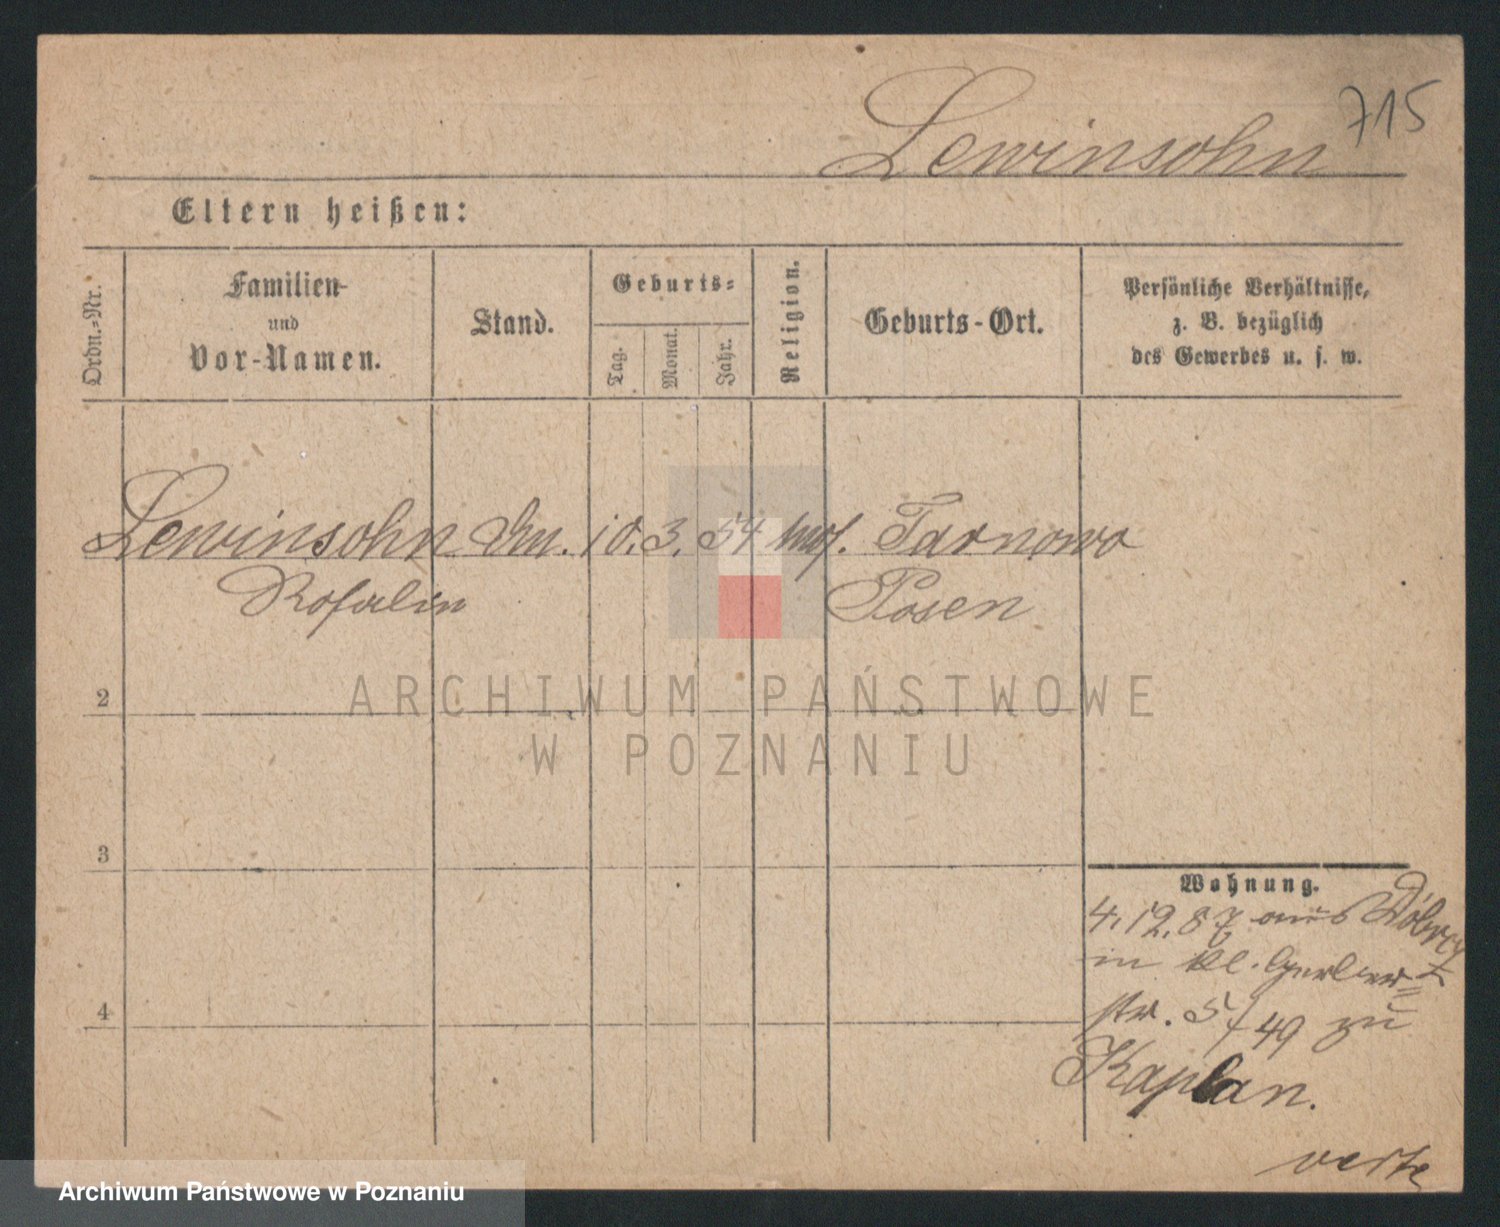 715
Lewinsohn
Eltern heißen:
Ordn.-Nr.
Familien-
und
Vor-Namen.
Stand.
Geburts-
Tag.
Monat.
Jahr.
Religion.
Geburts-Ort.
Persönliche Verhältnisse,
z. B. bezüglich
des Gewerbes u. s. w.
Lewinsohn 10. 3. 54 mos. Tarnowo
Rosalie Posen
2
3
4
ARCHIWUM PAŃSTWOWE
W POZNANIU
Wohnung.
4.12.87 aus
in kl. Gerber-
str. 5/49 zu
Kaplan.
verte
Archiwum Państwowe w Poznaniu